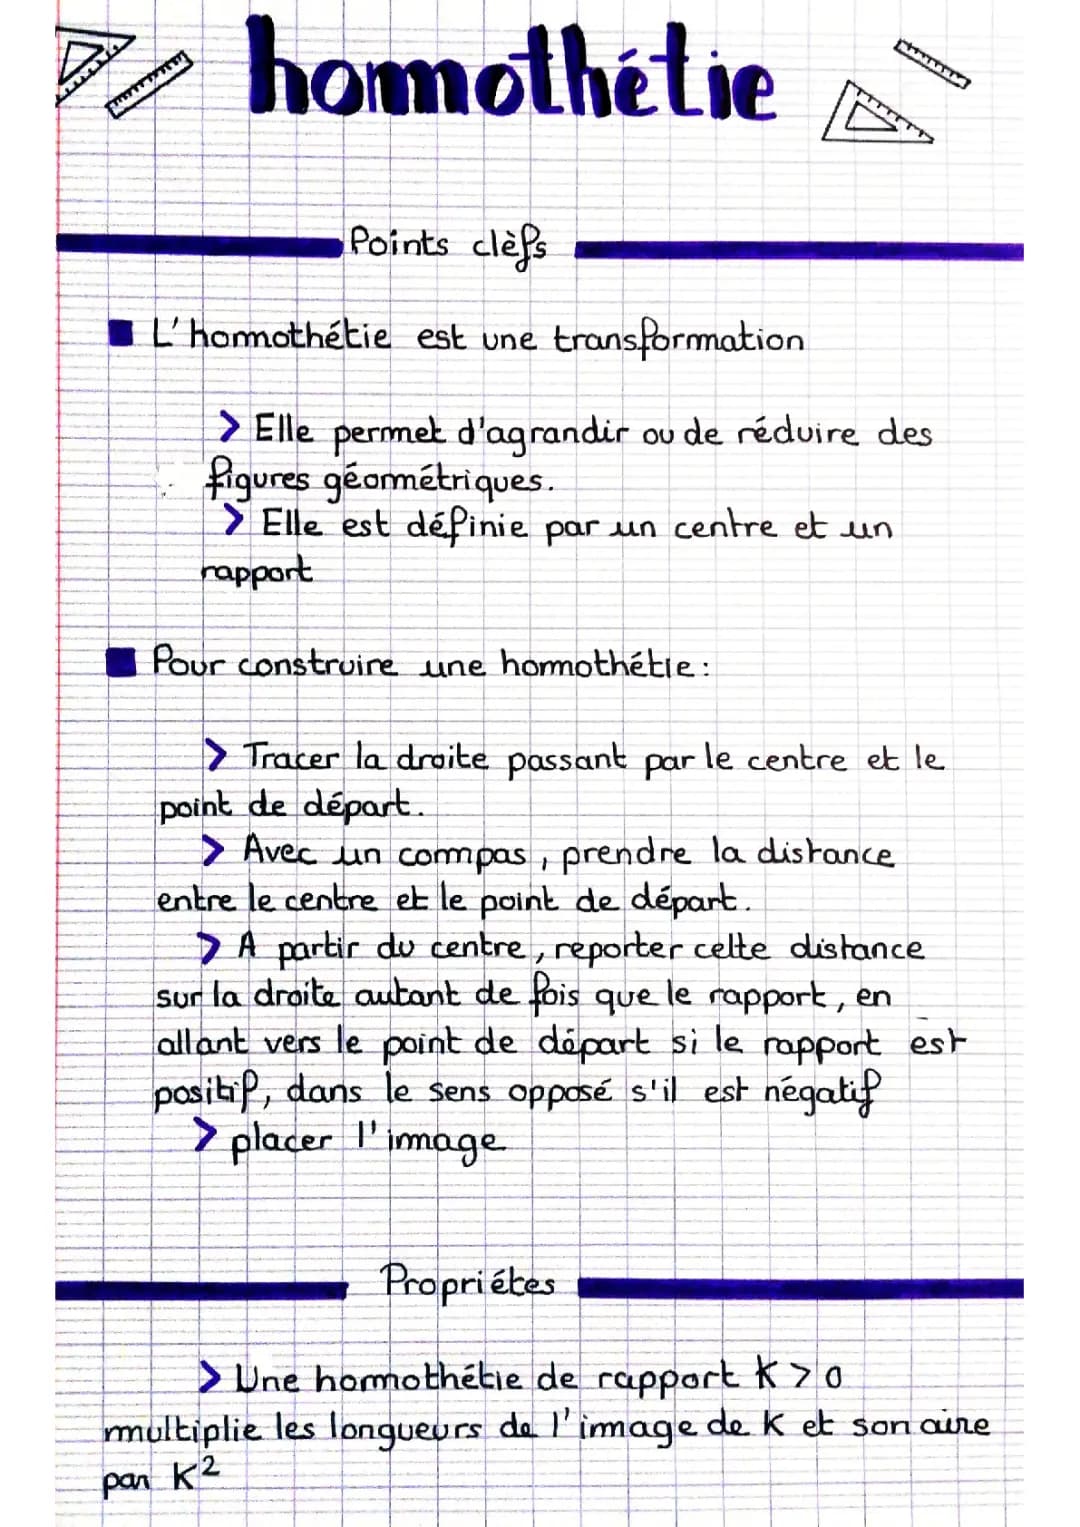 homothétie
Points clèfs
L'homothétie est une transformation
> Elle permet d'agrandir ou de réduire des
figures géométriques.
> Elle est définie par un centre et un
rapport
Pour construire une homothétie :
> Tracer la droite passant par le centre et le
point de départ.
> Avec un compas, prendre la distance
entre le centre et le point de départ.
> A partir du centre, reporter cette distance
sur la droite autant de fois que le rapport, en
allant vers le point de départ si le rapport est
positif, dans le sens opposé s'il est négatif
> placer l'image
Propriétes
> Une homothétie de rapport K > 0
multiplie les longueurs de l'image de K et son aire
par K²